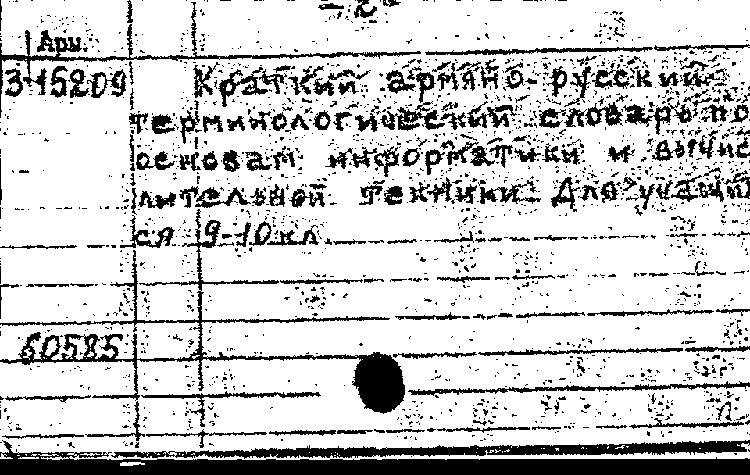 - 2 -
Арм.
3-15209 Краткий армяно-русский
терминологический словарь по
основам информатики и вычис
лительной техники. Для учащих
ся 9-10 кл.
60585